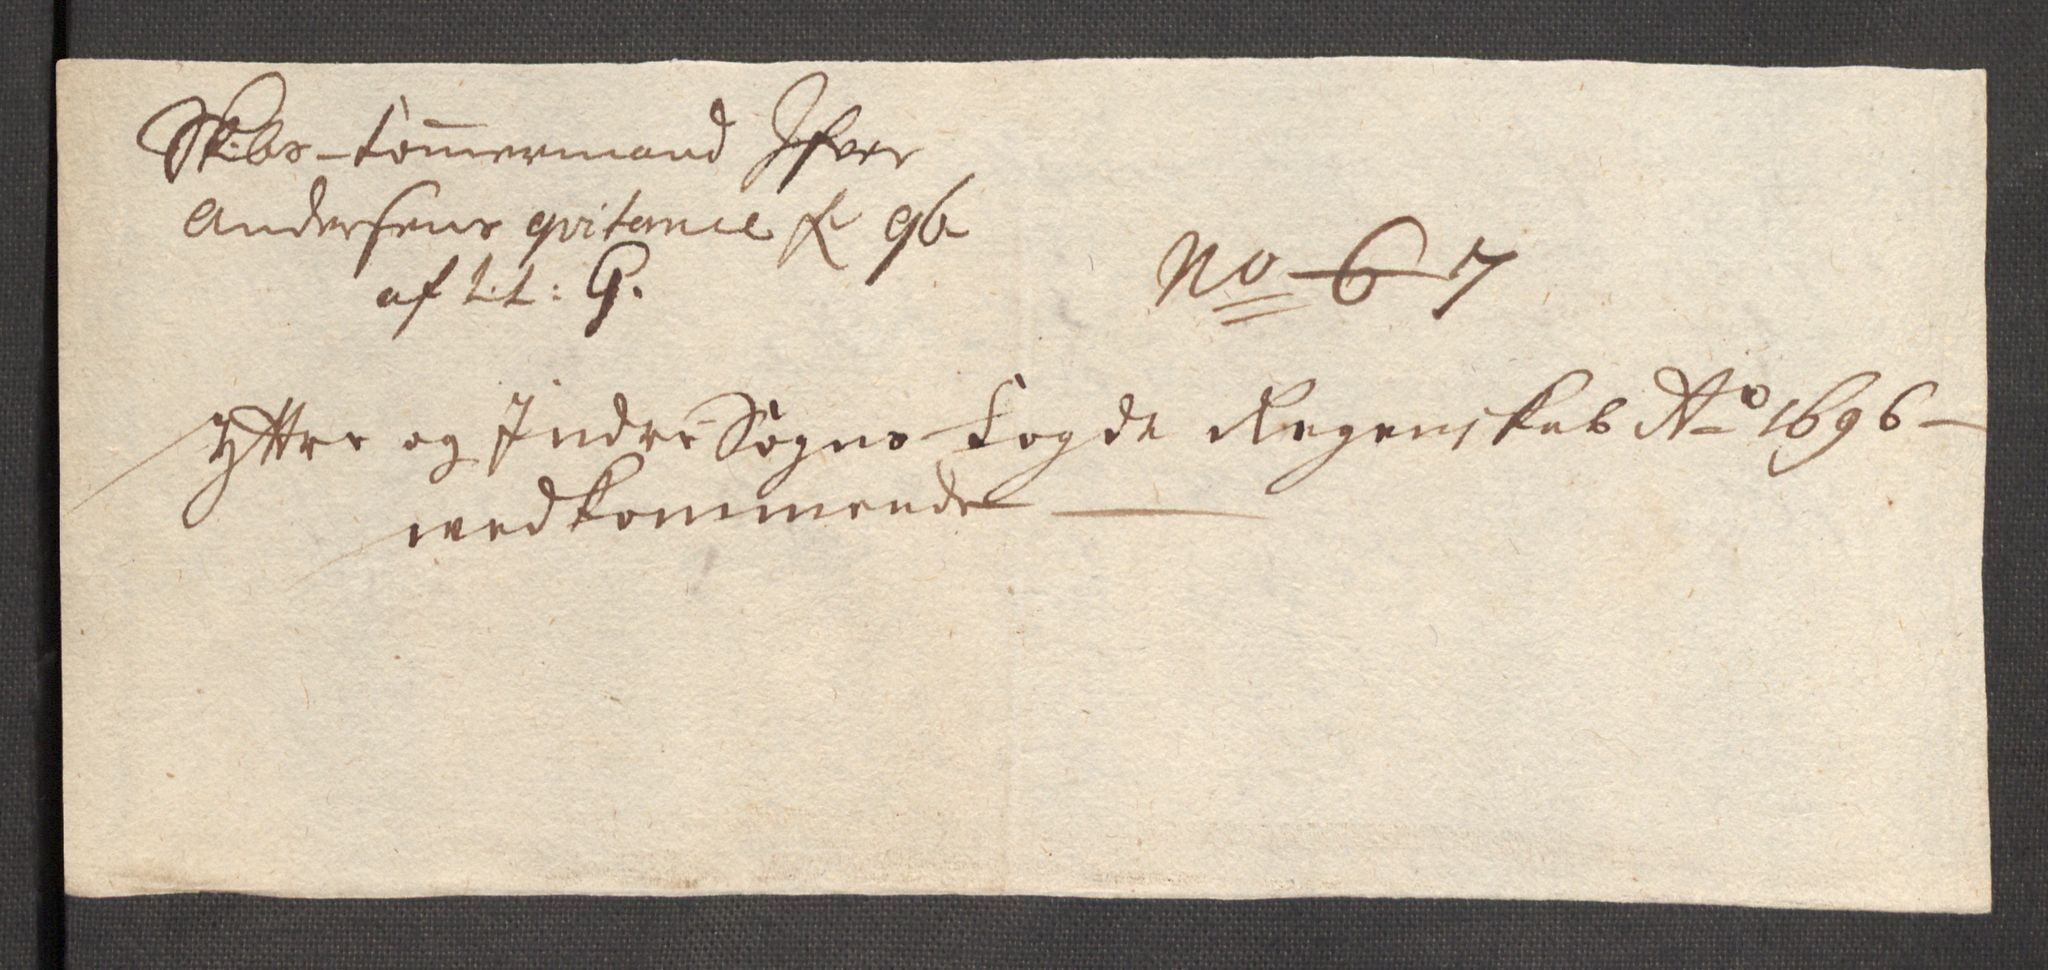 Skibs-tom̄ermand Ifver
Andersens qvitance f 96
af Lit: G.
No 6 7
Yttre og Indre Sogns Fogde Regenskab Ao 1696
wedkommende